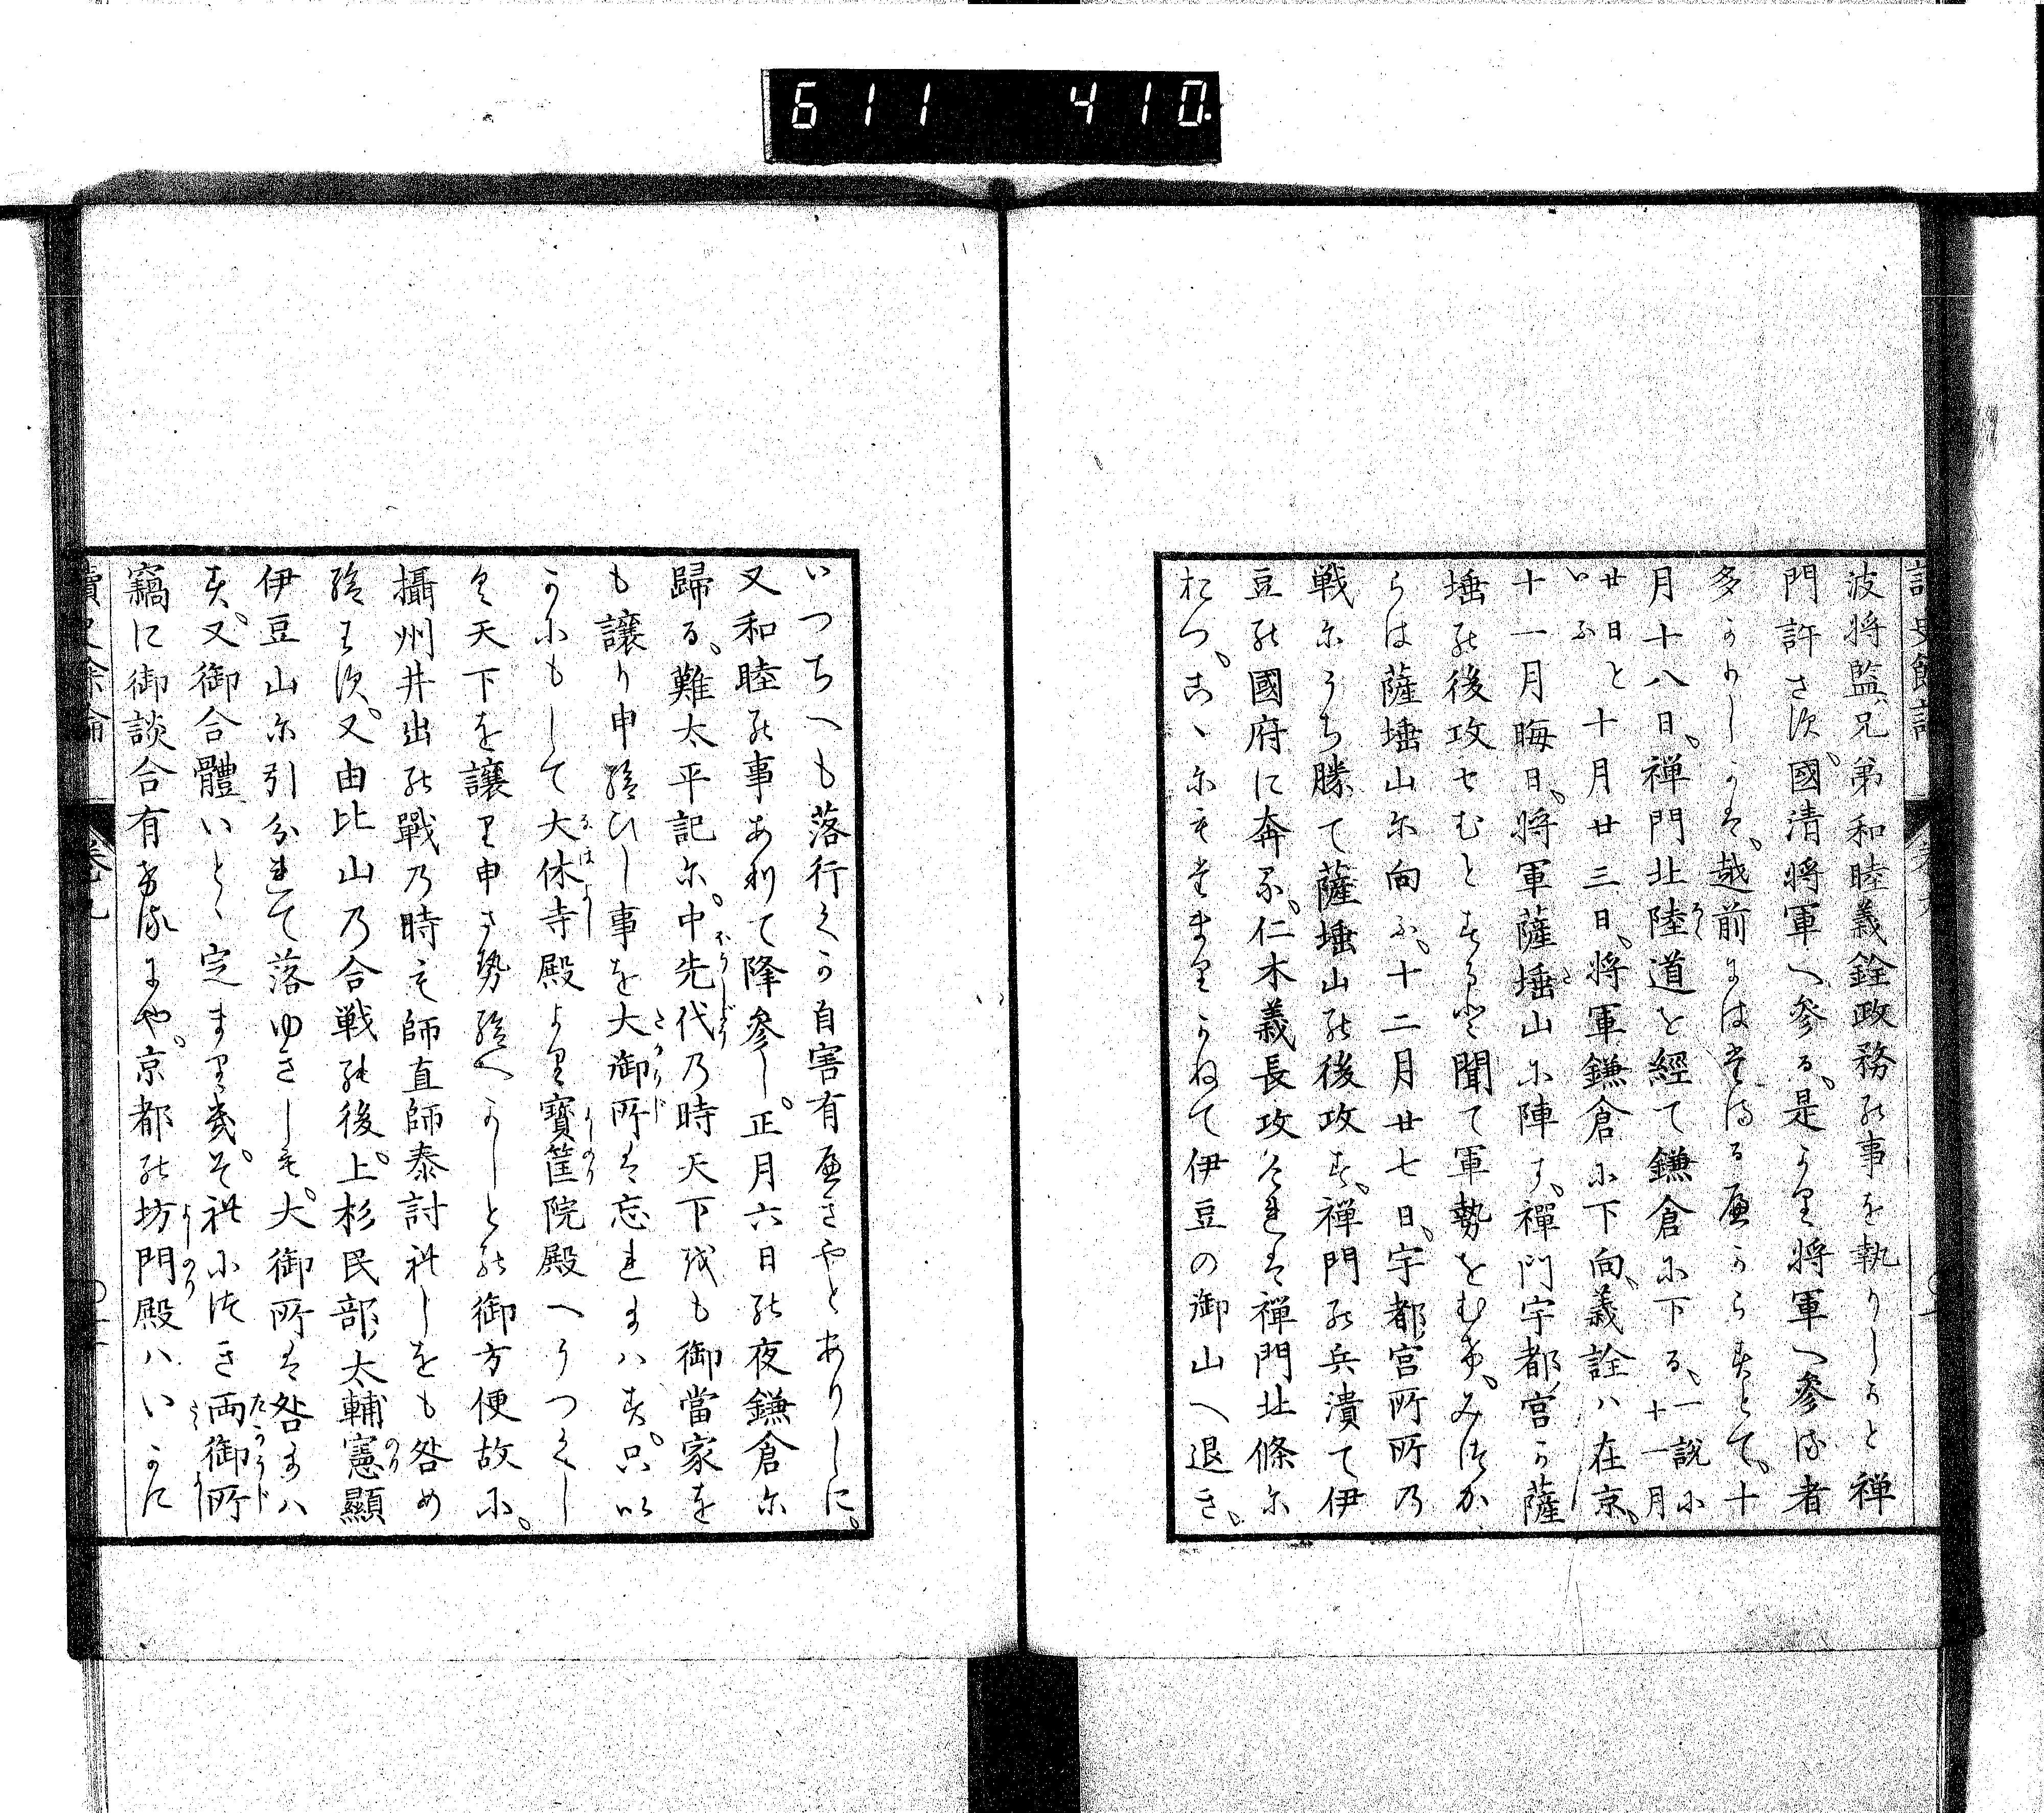 611 410
波将監兄弟和睦義銓政務の事を執りしかと禅
門許さす、國清将軍へ参る、是より将軍へ参る者
多かりしかは、越前にはたまるへからすとて、十
月十八日、禅門北陸道を經て鎌倉に下る、一説に十一月
廿日といふ十月廿三日、将軍鎌倉に下向、義詮ハ在京、
十一月晦日、将軍薩埵山に陣す、禅門宇都宮か薩
埵の後攻せむとするを聞て軍勢をむけ、みつか
らは薩埵山に向ふ、十二月廿七日、宇都宮所所乃
戦にうち勝て薩埵山の後攻す、禅門の兵潰て伊
豆の國府に奔る、仁木義長攻くれは禅門北條に
おつ、こゝにもたまりかねて伊豆の御山へ退き、
いつちへも落行くか自害有へきやとありしに。
又和睦の事ありて降参し。正月六日の夜鎌倉に
歸る、難太平記に。中先代乃時天下をも御當家を
も譲り申給ひし事を大御所は忘れ給ハす。只い
かにもして大休寺殿より寶筐院殿へうつくし
く天下を譲り申させ給へかしとの御方便故に。
攝州井出の戰乃時も師直師泰討れしをも咎め
給はす。又由比山乃合戦の後。上杉民部太輔憲顯
伊豆山に引分れて落ゆきしも。大御所は咎給ハ
す。又御合體いとゝ定まりき。それにつき両御所
竊に御談合有けるにや。京都の坊門殿ハいかに